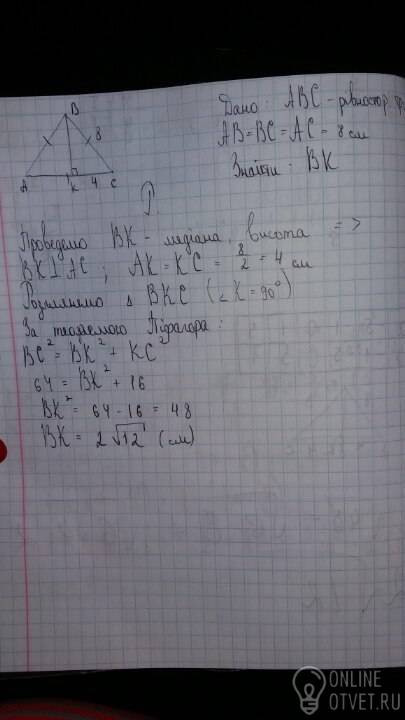 B
8
A
K
4
C
Дано: ABC - рівностор.
AB=BC=AC = 8 см
Знайти: BK
Проведемо BK - медіана, висота =>
BK⊥AC; AK=KC = 8/2 = 4 см
Розглянемо Δ BKC (∠K=90°)
За теоремою Піфагора:
BC² = BK² + KC²
64 = BK² + 16
BK² = 64 - 16 = 48
BK = 2√12 (см)
ONLINE
OTVET.RU